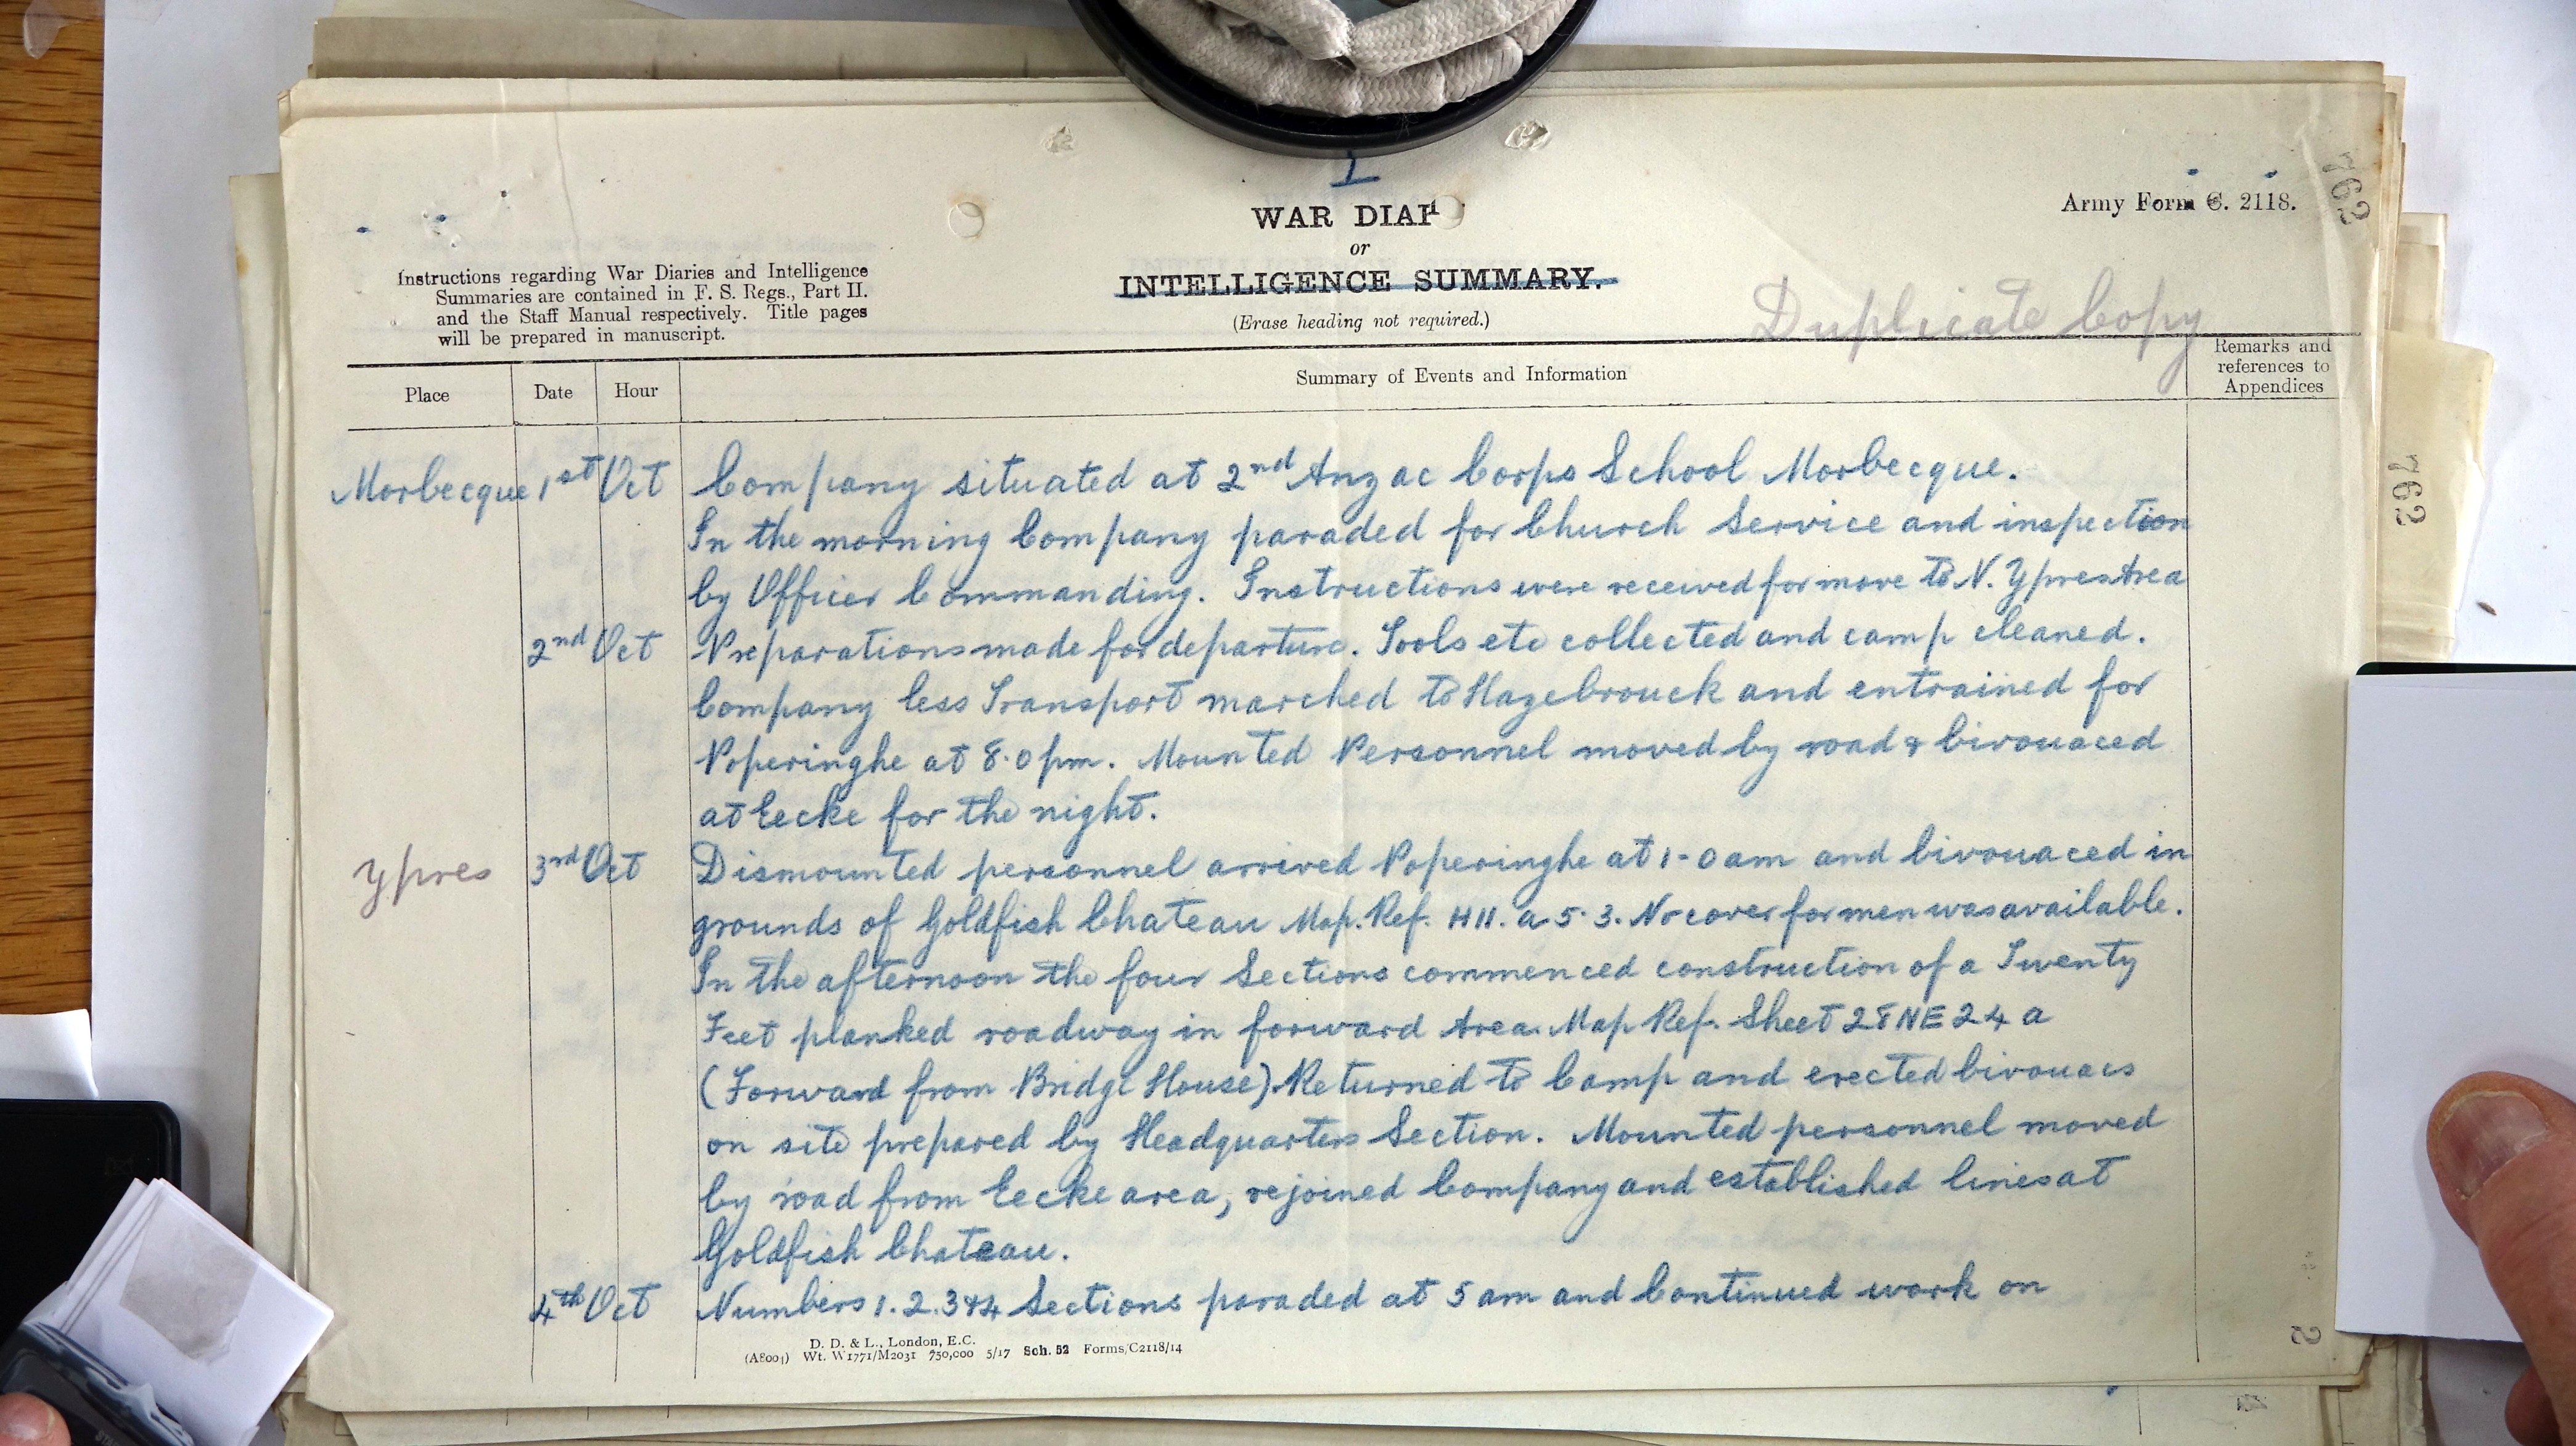 1
WAR DIAR
or
INTELLIGENCE SUMMARY.
(Erase heading not required.)
Army Form C. 2118.
762
Instructions regarding War Diaries and Intelligence
Summaries are contained in F. S. Regs., Part II.
and the Staff Manual respectively. Title pages
will be prepared in manuscript.
Duplicate Copy
Place Date Hour Summary of Events and Information Remarks and
references to
Appendices
762
Morbecque 1st Oct Company situated at 2nd Anzac Corps School Morbecque.
In the morning Company paraded for Church Service and inspection
by Officer Commanding. Instructions were received for move to N. Ypres Area
2nd Oct Preparations made for departure. Tools etc collected and camp cleaned.
Company less Transport marched to Hazebrouck and entrained for
Poperinghe at 8.0 pm. Mounted Personnel moved by road & bivouaced
at Eecke for the night.
Ypres 3rd Oct Dismounted personnel arrived Poperinghe at 1-0 am and bivouaced in
grounds of Goldfish Chateau Map. Ref. H11. a.5.3. No cover for men was available.
In the afternoon the four Sections commenced construction of a Twenty
Feet planked roadway in forward Area. Map Ref. Sheet 28 NE 24 a
(Forward from Bridge House). Returned to Camp and erected bivouacs
on site prepared by Headquarters Section. Mounted personnel moved
by road from Eecke area, rejoined Company and established lines at
Goldfish Chateau.
4th Oct Numbers 1. 2. 3 & 4 Sections paraded at 5 am and Continued work on
D. D. & L., London, E.C.
(A8004) Wt. W1771/M2031 750,000 5/17 Sch. 52 Forms/C2118/14
2